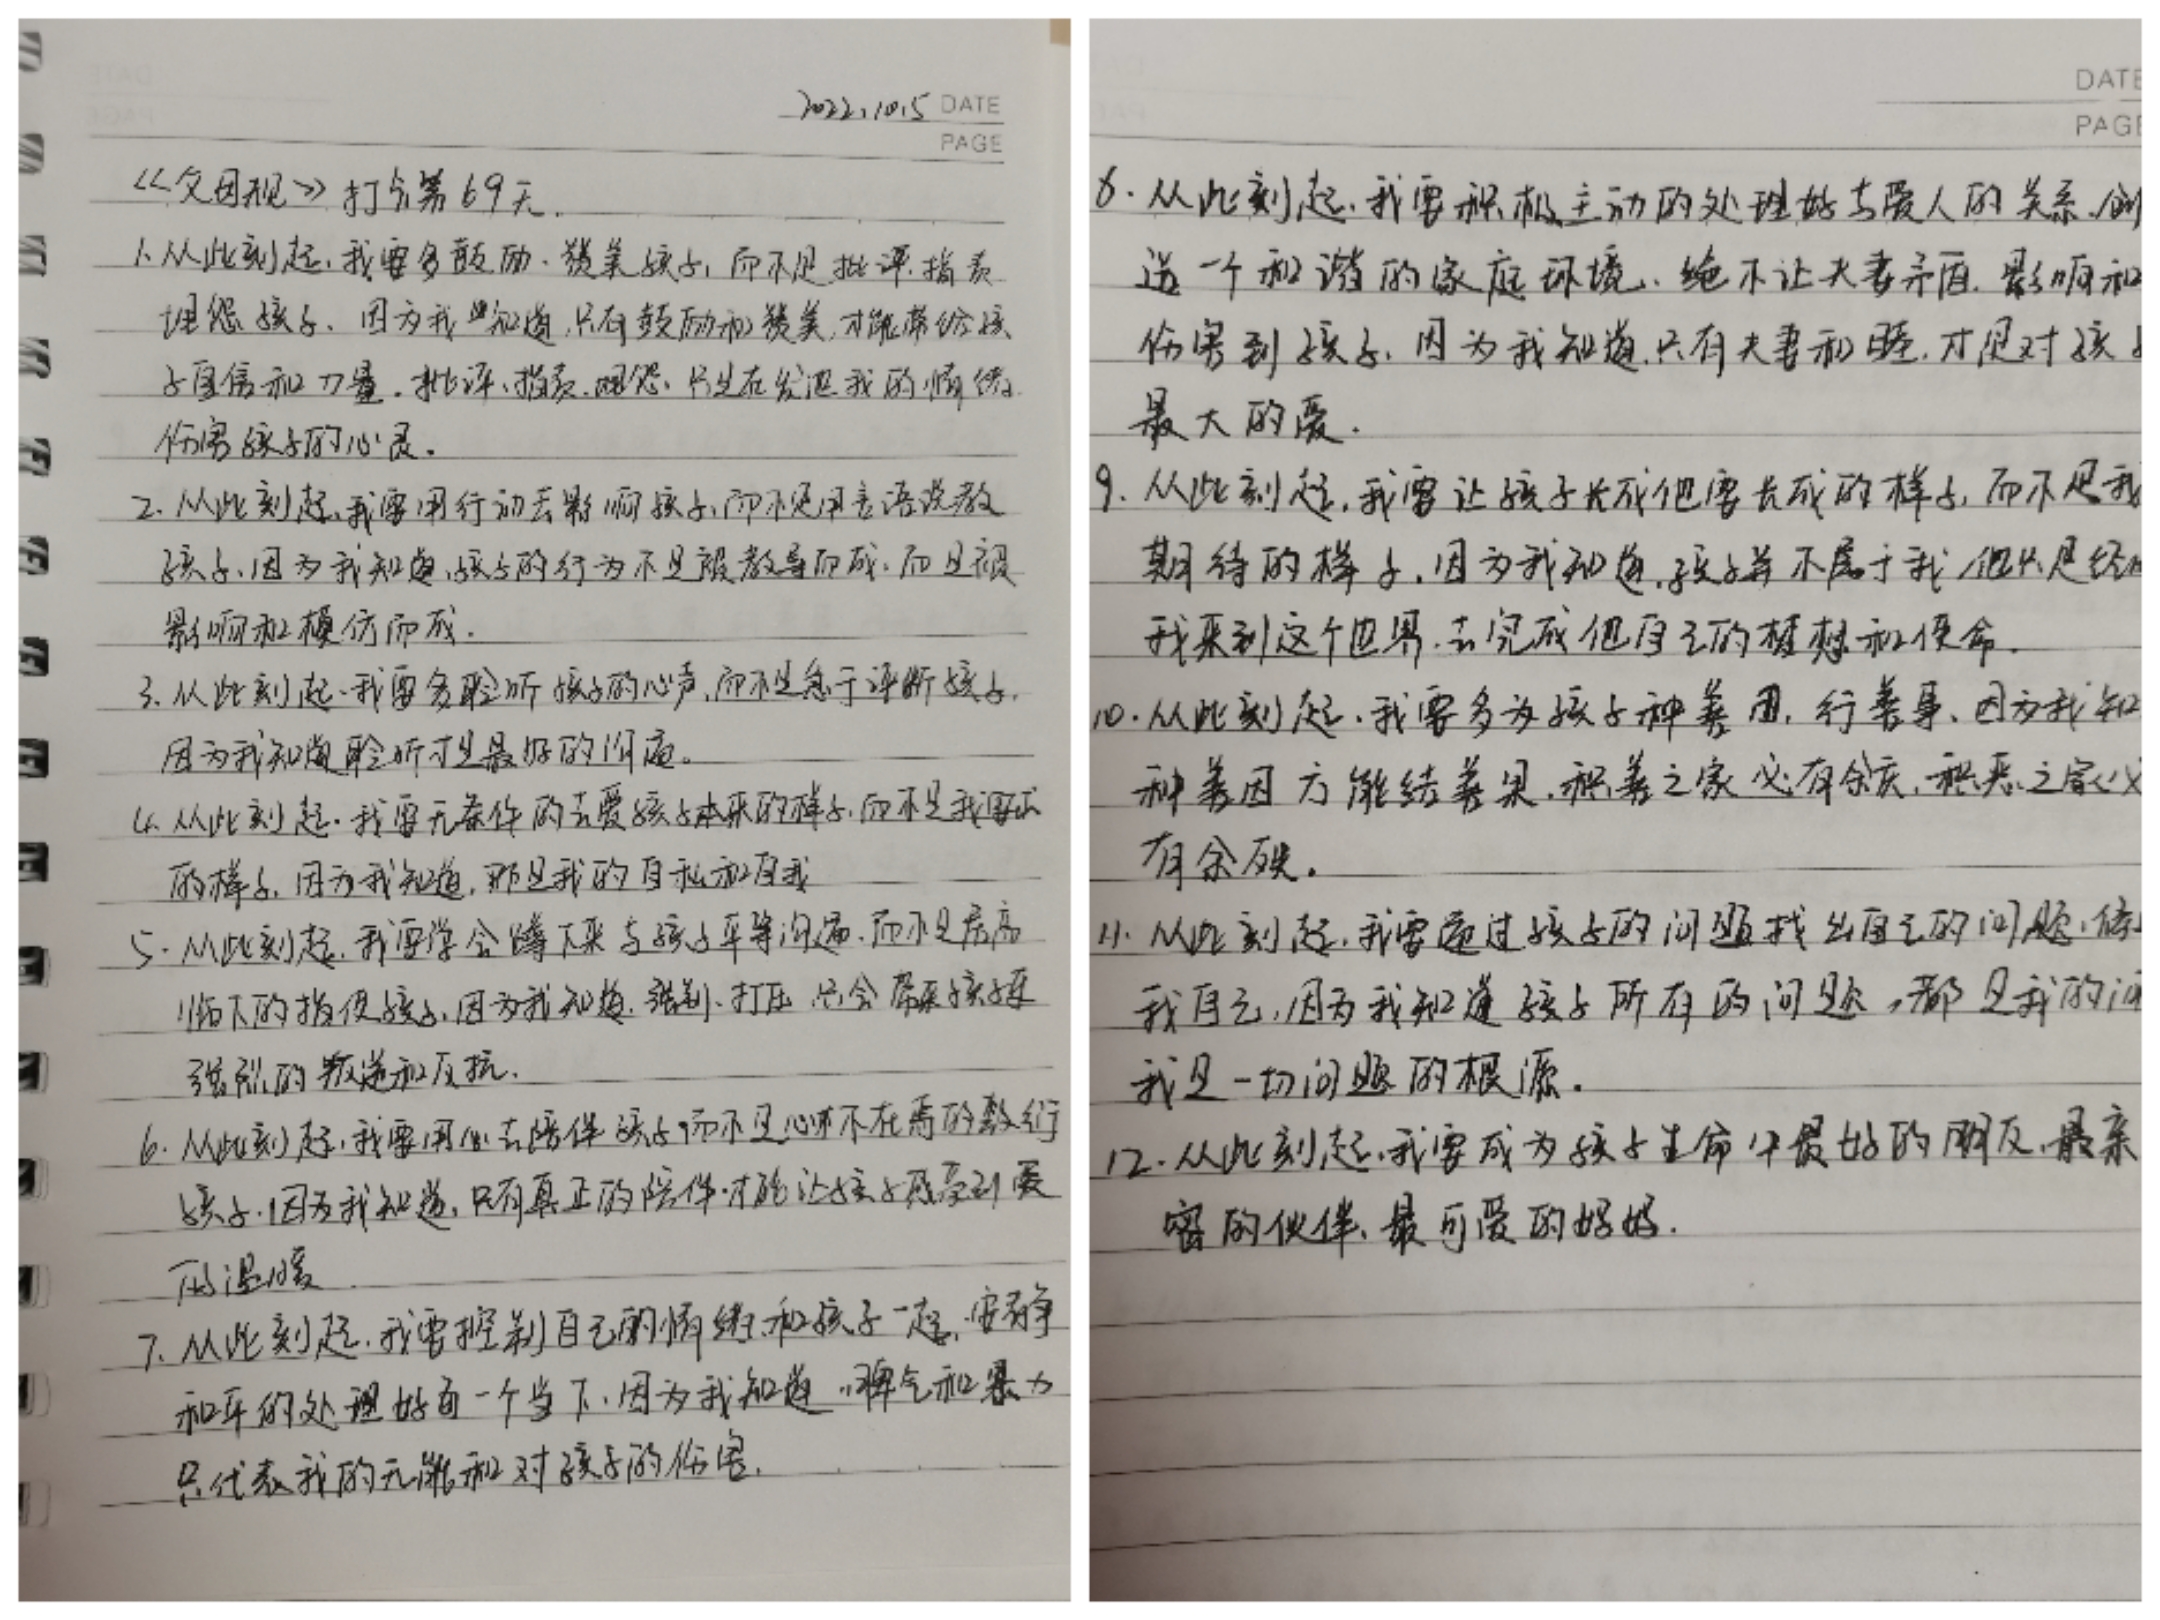 2022.10.5 DATE
PAGE
《父母规》打卡第69天.
1.从此刻起,我要多鼓励、赞美孩子,而不是批评、指责
埋怨孩子,因为我知道,只有鼓励和赞美,才能带给孩
子自信和力量.批评、指责、埋怨,只是在发泄我的情绪,
伤害孩子的心灵.
2.从此刻起,我要用行动去影响孩子,而不是用言语说教
孩子,因为我知道,孩子的行为不是被教导而成,而是被
影响和模仿而成.
3.从此刻起,我要多聆听孩子的心声,而不是急于评断孩子,
因为我知道聆听才是最好的沟通。
4.从此刻起,我要无条件的去爱孩子本来的样子,而不是我要求
的样子,因为我知道,那是我的自私和自我
5.从此刻起,我要学会蹲下来与孩子平等沟通,而不是居高
临下的指使孩子,因为我知道,强制、打压只会带来孩子更
强烈的叛逆和反抗.
6.从此刻起,我要用心去陪伴孩子,而不是心不在焉的敷衍
孩子,因为我知道,只有真正的陪伴,才能让孩子感受到爱
的温暖
7.从此刻起,我要控制自己的情绪,和孩子一起,安静
和平的处理好每一个当下,因为我知道,脾气和暴力
只代表我的无能和对孩子的伤害.
DATE
PAGE
8.从此刻起,我要积极主动的处理好与爱人的关系,创
造一个和谐的家庭环境,绝不让夫妻矛盾,影响和
伤害到孩子,因为我知道,只有夫妻和睦,才是对孩子
最大的爱.
9.从此刻起,我要让孩子长成他要长成的样子,而不是我
期待的样子,因为我知道,孩子并不属于我,他只是经
我来到这个世界,去完成他自己的梦想和使命.
10.从此刻起,我要多为孩子种善因,行善事,因为我知
种善因方能结善果,积善之家必有余庆,积恶之家必
有余殃.
11.从此刻起,我要通过孩子的问题找出自己的问题,修
我自己,因为我知道孩子所有的问题,都是我的问
我是一切问题的根源.
12.从此刻起,我要成为孩子生命中最好的朋友,最亲
密的伙伴,最可爱的妈妈.